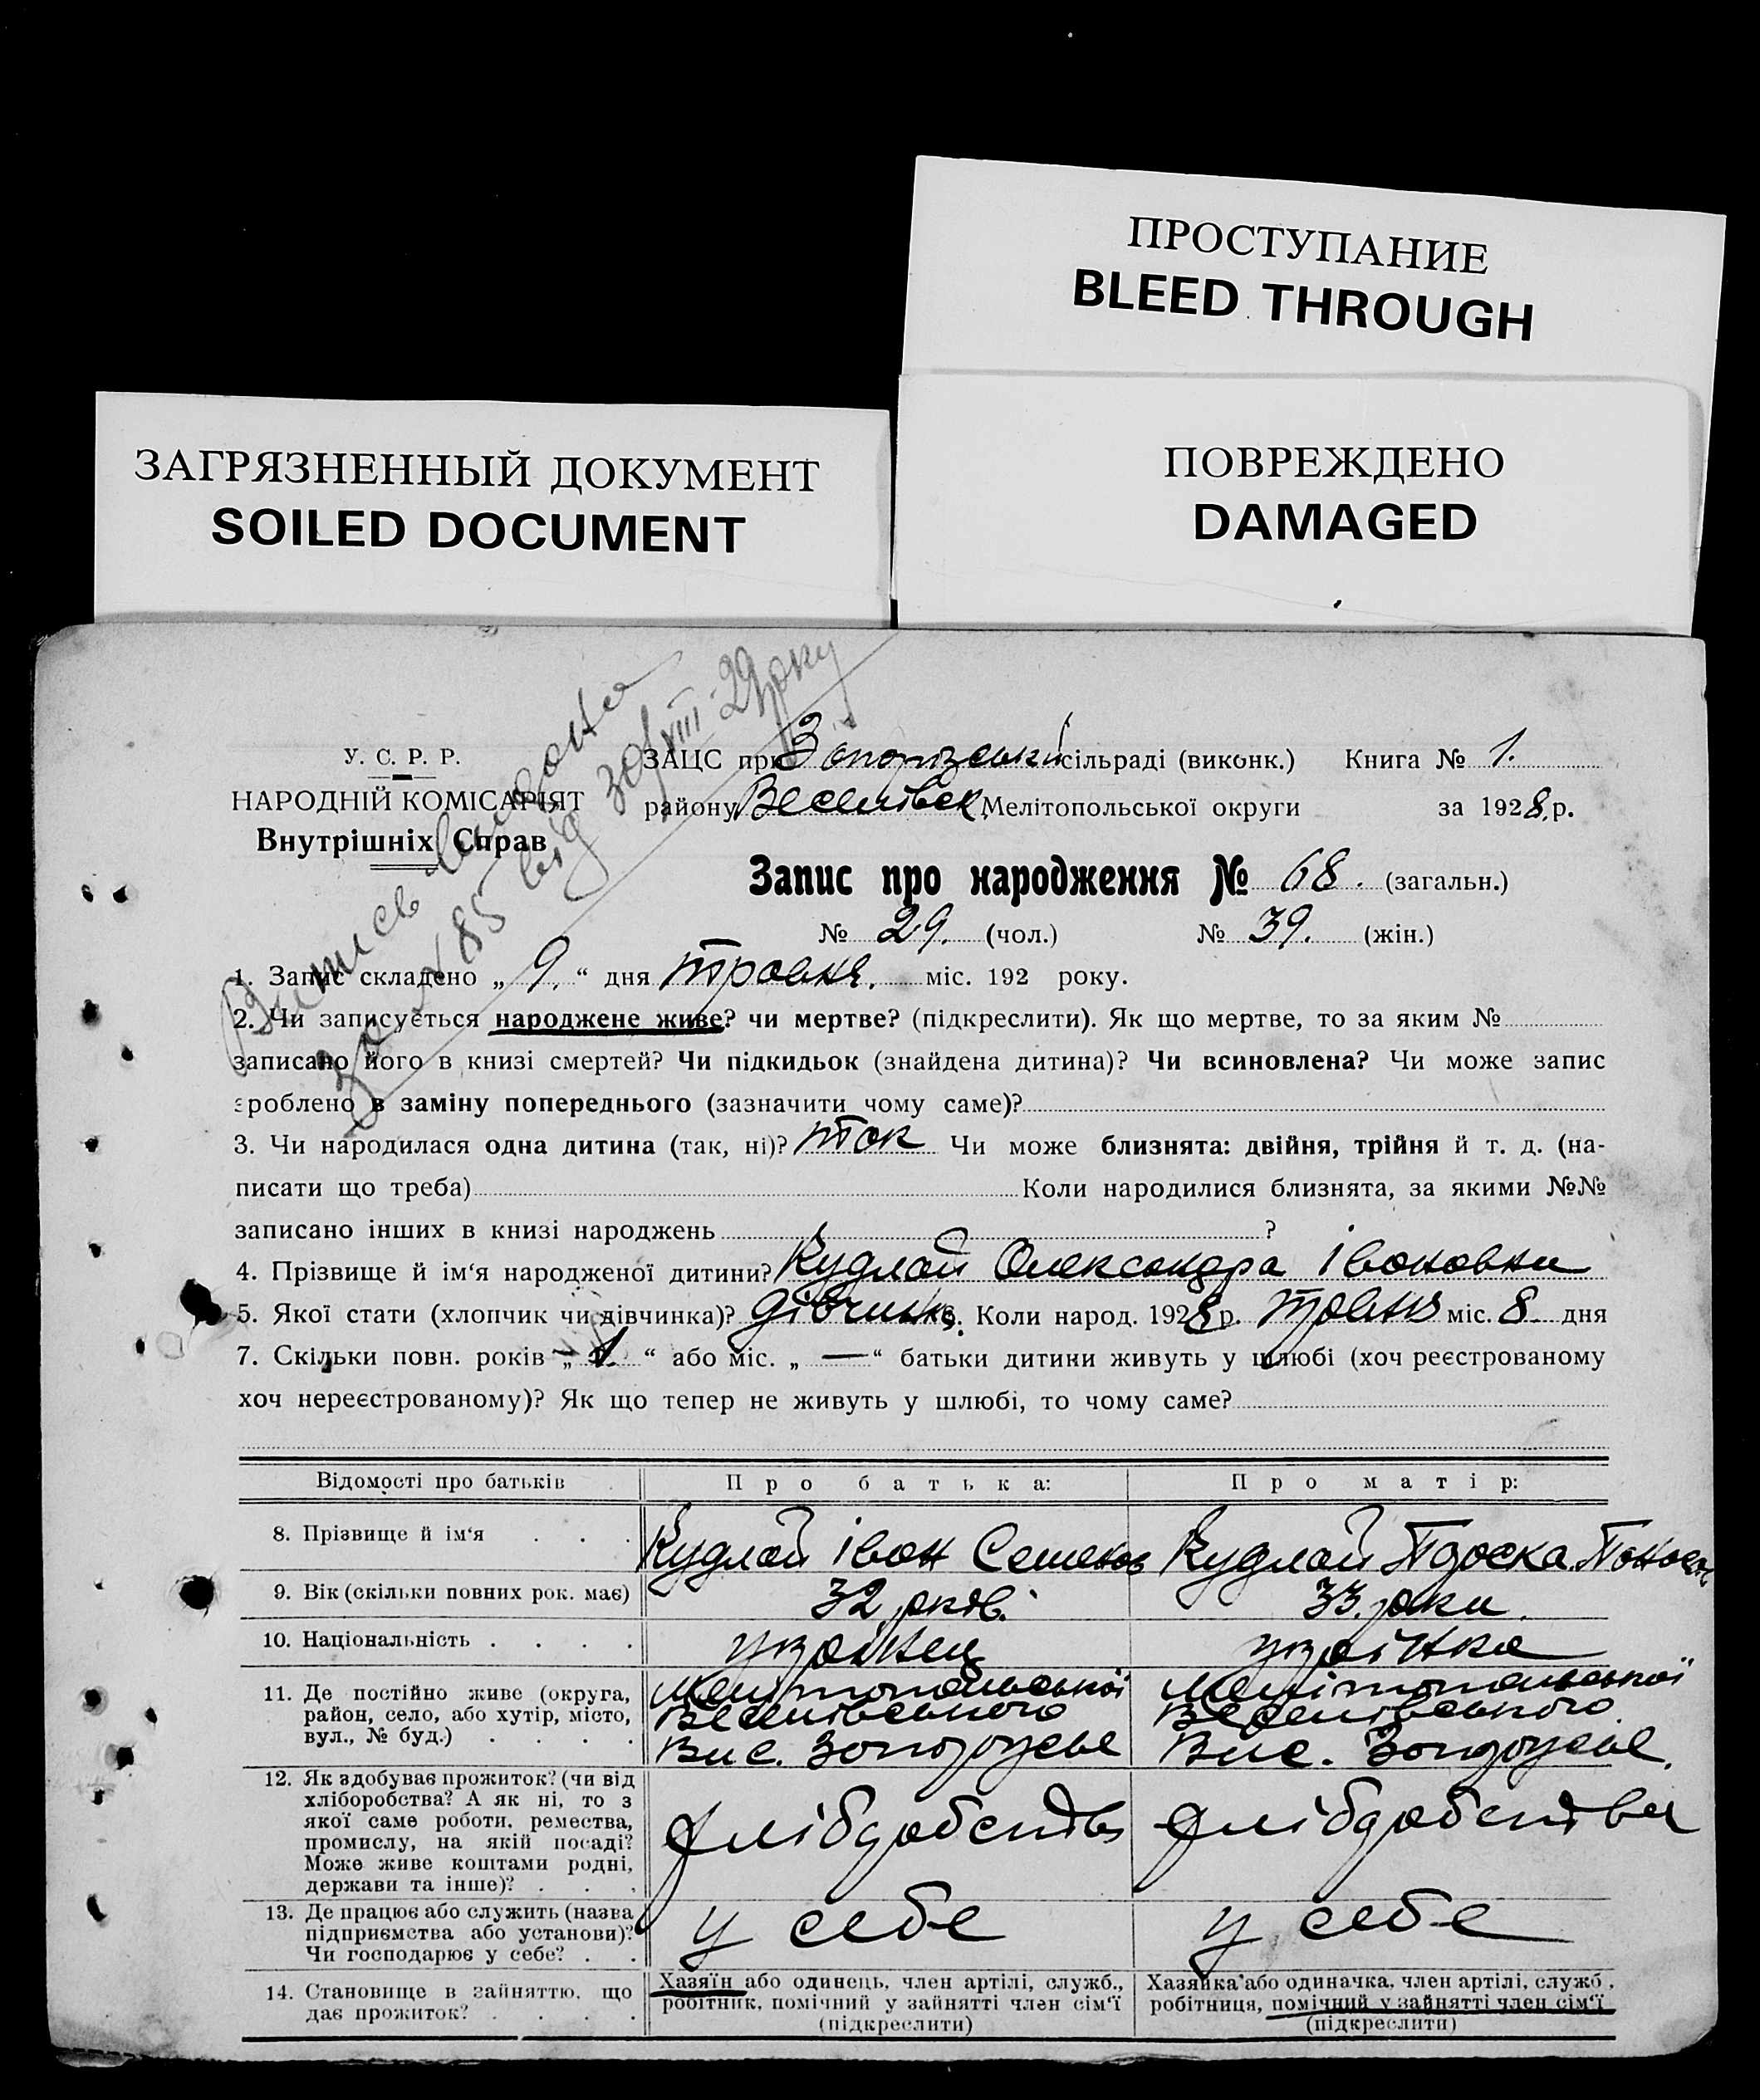 ПРОСТУПАНИЕ
BLEED THROUGH
ЗАГРЯЗНЕННЫЙ ДОКУМЕНТ
SOILED DOCUMENT
ПОВРЕЖДЕНО
DAMAGED
У. С. Р. Р.
НАРОДНІЙ КОМІСАРІЯТ
Внутрішніх Справ
за № 85 від 30/VIII-29 року
ЗАЦС при Запорізській сільраді (виконк.) Книга № 1.
району Веселівськ Мелітопольської округи за 1928 р.
Запис про народження № 68. (загальн.)
№ 29. (чол.) № 39. (жін.)
1. Запис складено „ 9. “ дня травня. міс. 192 року.
2. Чи записується народжене живе? чи мертве? (підкреслити). Як що мертве, то за яким №
записано його в книзі смертей? Чи підкидьок (знайдена дитина)? Чи всиновлена? Чи може запис
зроблено в заміну попереднього (зазначити чому саме)?
3. Чи народилася одна дитина (так, ні)? так Чи може близнята: двійня, трійня й т. д. (на-
писати що треба) Коли народилися близнята, за якими №№
записано інших в книзі народжень ?
4. Прізвище й ім‘я народженої дитини? Кудлай Олександра Івановни
5. Якої стати (хлопчик чи дівчинка)? дівчинка 6. Коли народ. 1928 р. травня міс. 8 дня
7. Скільки повн. років „ 1 “ або міс. „ — “ батьки дитини живуть у шлюбі (хоч реєстрованому
хоч нереєстрованому)? Як що тепер не живуть у шлюбі, то чому саме?
Відомості про батьків Про батька: Про матір:
8. Прізвище й ім‘я . . . Кудлай Іван Семенов Кудлай
9. Вік (скільки повних рок. має) 32 років. 33 роки.
10. Національність . . . . украінец украінка
11. Де постійно живе (округа, Мелітопольської Мелітопольської
район, село, або хутір, місто, Веселівського Веселівського
вул., № буд.) . . . . Вис. Запорожье Вис. Запорожье.
12. Як здобуває прожиток? (чи від
хліборобства? А як ні, то з
якої саме роботи, ремества,
промислу, на якій посаді?
Може живе коштами родні,
держави та інше)? . . .
у себе у себе
13. Де працює або служить (назва
підприємства або установи)?
Чи господарює у себе? . .
14. Становище в зайняттю, що
дає прожиток? . . . .
Хазяїн або одинець, член артілі, служб.,
робітник, помічний у зайнятті член сім‘ї
(підкреслити)
Хазяйка або одиначка, член артілі, служб.,
робітниця, помічний у зайнятті член сім‘ї
(підкреслити)